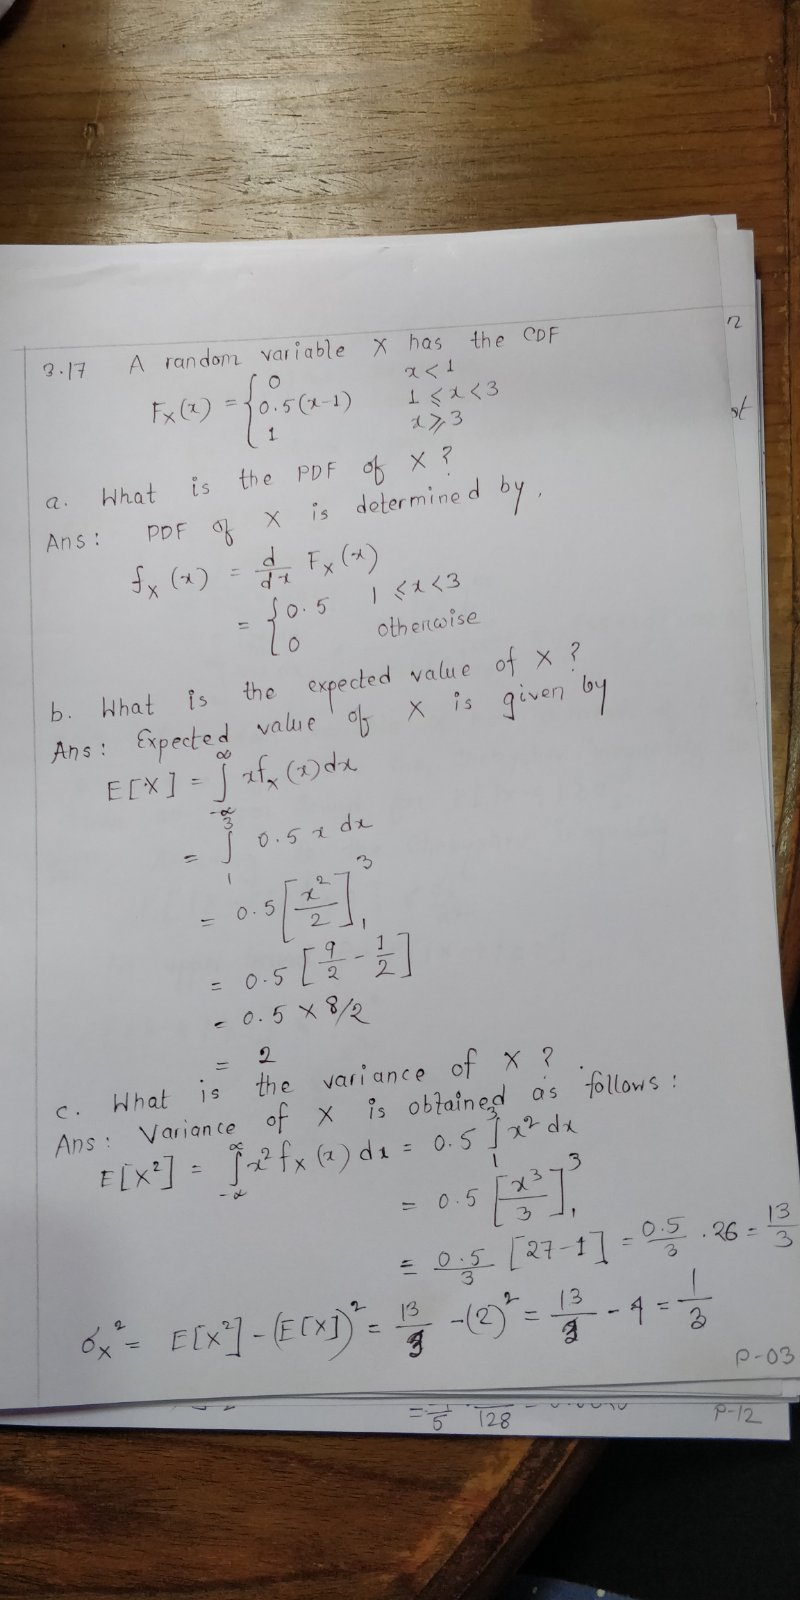 3.17 A random variable X has the CDF
F_X(x) = { 0 x < 1
0.5(x-1) 1 ⩽ x < 3
1 x ⩾ 3
a. What is the PDF of X ?
Ans : PDF of X is determined by.
f_X (x) = d/dx F_X (x)
= { 0.5 1 ⩽ x < 3
0 otherwise
b. What is the expected value of X ?
Ans : Expected value of X is given by
E[X] = ∫_{-∞}^{∞} x f_X (x) dx
= ∫_1^3 0.5 x dx
= 0.5 [x²/2]_1^3
= 0.5 [9/2 - 1/2]
= 0.5 × 8/2
= 2
c. What is the variance of X ?
Ans : Variance of X is obtained as follows :
E[X²] = ∫_{-∞}^{∞} x² f_X (x) dx = 0.5 ∫_1^3 x² dx
= 0.5 [x³/3]_1^3
= 0.5/3 [27-1] = 0.5/3 . 26 = 13/3
σ_X² = E[X²] - (E[X])² = 13/3 - (2)² = 13/3 - 4 = 1/3
P-03
128
P-12